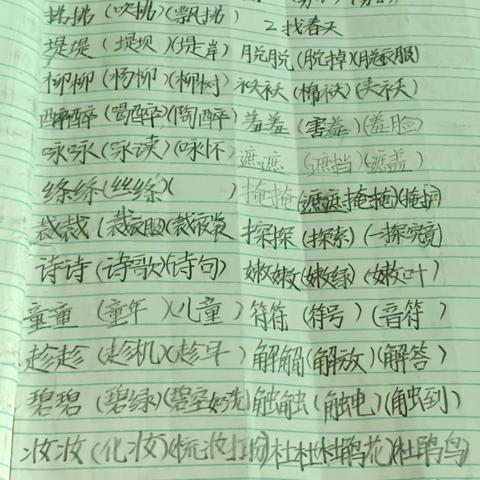 拂拂（吹拂）（飘拂） 2找春天
堤堤（堤坝）（堤岸） 脱脱（脱掉）（脱衣服）
柳柳（杨柳）（柳树） 袄袄（棉袄）（夹袄）
醉醉（喝醉）（陶醉） 羞羞（害羞）（羞脸）
咏咏（咏读）（咏怀） 遮遮（遮挡）（遮盖）
绦绦（丝绦）（ ） 掩掩（遮遮掩掩）
裁裁（裁衣服）（裁衣裳 探探（探索）（一探究竟）
诗诗（诗歌）（诗句） 嫩嫩（嫩绿）（嫩叶）
童童（童年）（儿童） 符符（符号）（音符）
趁趁（趁机）（趁早） 解解（解放）（解答）
碧碧（碧绿）（碧空如洗） 触触（触电）（触到）
妆妆（化妆）（梳妆打扮） 杜杜（杜鹃花）（杜鹃鸟）